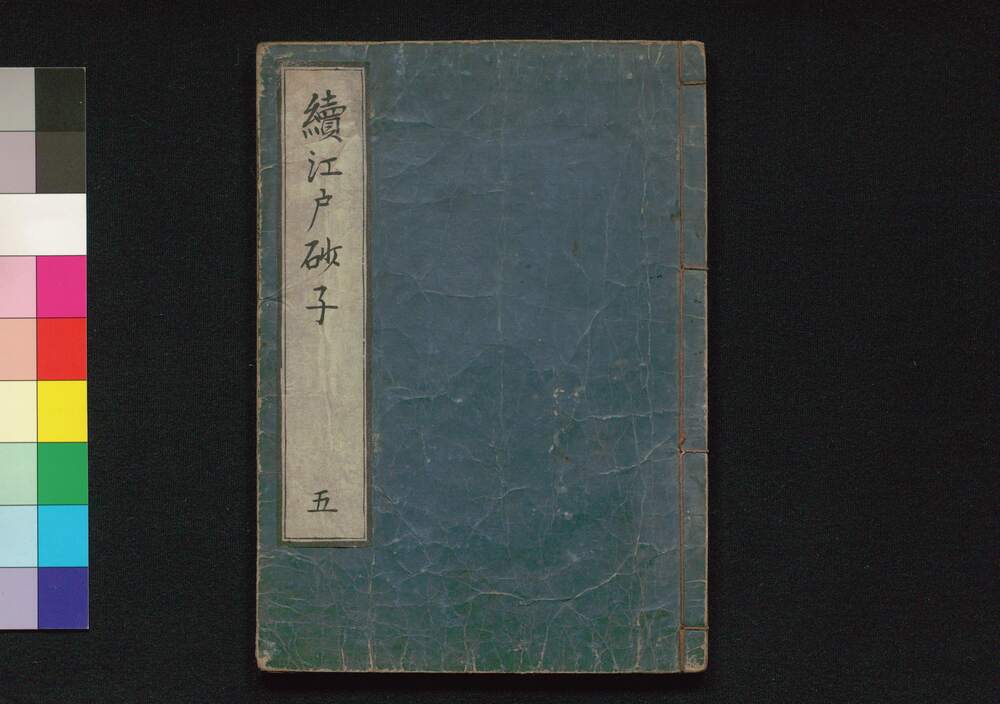 續江戸砂子
五